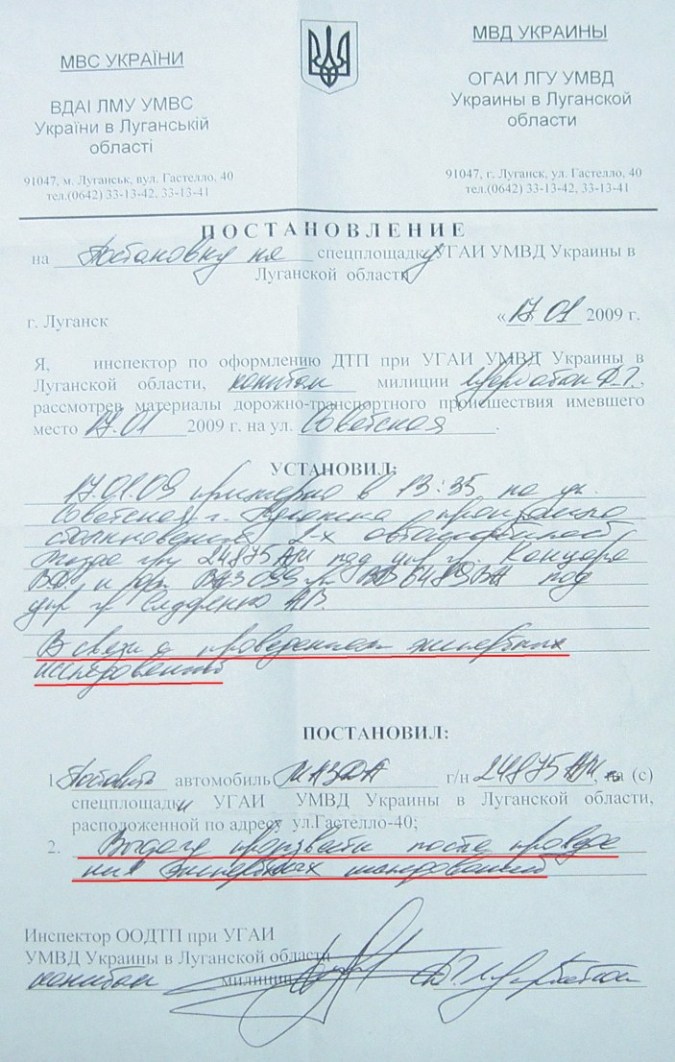 МВС УКРАЇНИ
ВДАІ ЛМУ УМВС
України в Луганській
області
91047, м. Луганськ, вул. Гастелло, 40
тел.(0642) 33-13-42, 33-13-41
МВД УКРАИНЫ
ОГАИ ЛГУ УМВД
Украины в Луганской
области
91047, г. Луганск, ул. Гастелло, 40
тел.(0642) 33-13-42, 33-13-41
ПОСТАНОВЛЕНИЕ
на Постановку на спецплощадку УГАИ УМВД Украины в
Луганской области
г. Луганск
«17» 01 2009 г.
Я, инспектор по оформлению ДТП при УГАИ УМВД Украины в
Луганской области, капитан милиции
рассмотрев материалы дорожно-транспортного происшествия имевшего
место 17.01 2009 г. на ул. Советская.
УСТАНОВИЛ:
17.01.09 примерно в 13:35 на ул.
Советская г. Луганска произошло
столкновение 2-х автомобилей
Мазда г/н 24875АМ под упр. гр.
и ВАЗ 099 под
упр. гр.
В связи с проведением экспертных
исследований
ПОСТАНОВИЛ:
1. Поставить автомобиль МАЗДА г/н 24875АМ, (с)
спецплощадки УГАИ УМВД Украины в Луганской области,
расположенной по адресу ул.Гастелло-40;
2. Выдачу произвести после проведе
ния экспертных исследований
Инспектор ООДТП при УГАИ
УМВД Украины в Луганской области
капитан милиции